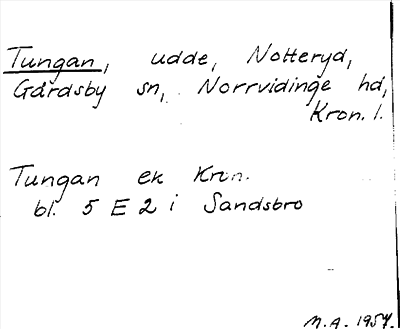 Tungan, udde, Notteryd,
Gårdsby sn, Norrvidinge hd,
Kron. l.
Tungan ek Kron.
bl. 5 E 2 i Sandsbro
M.A. 1957.